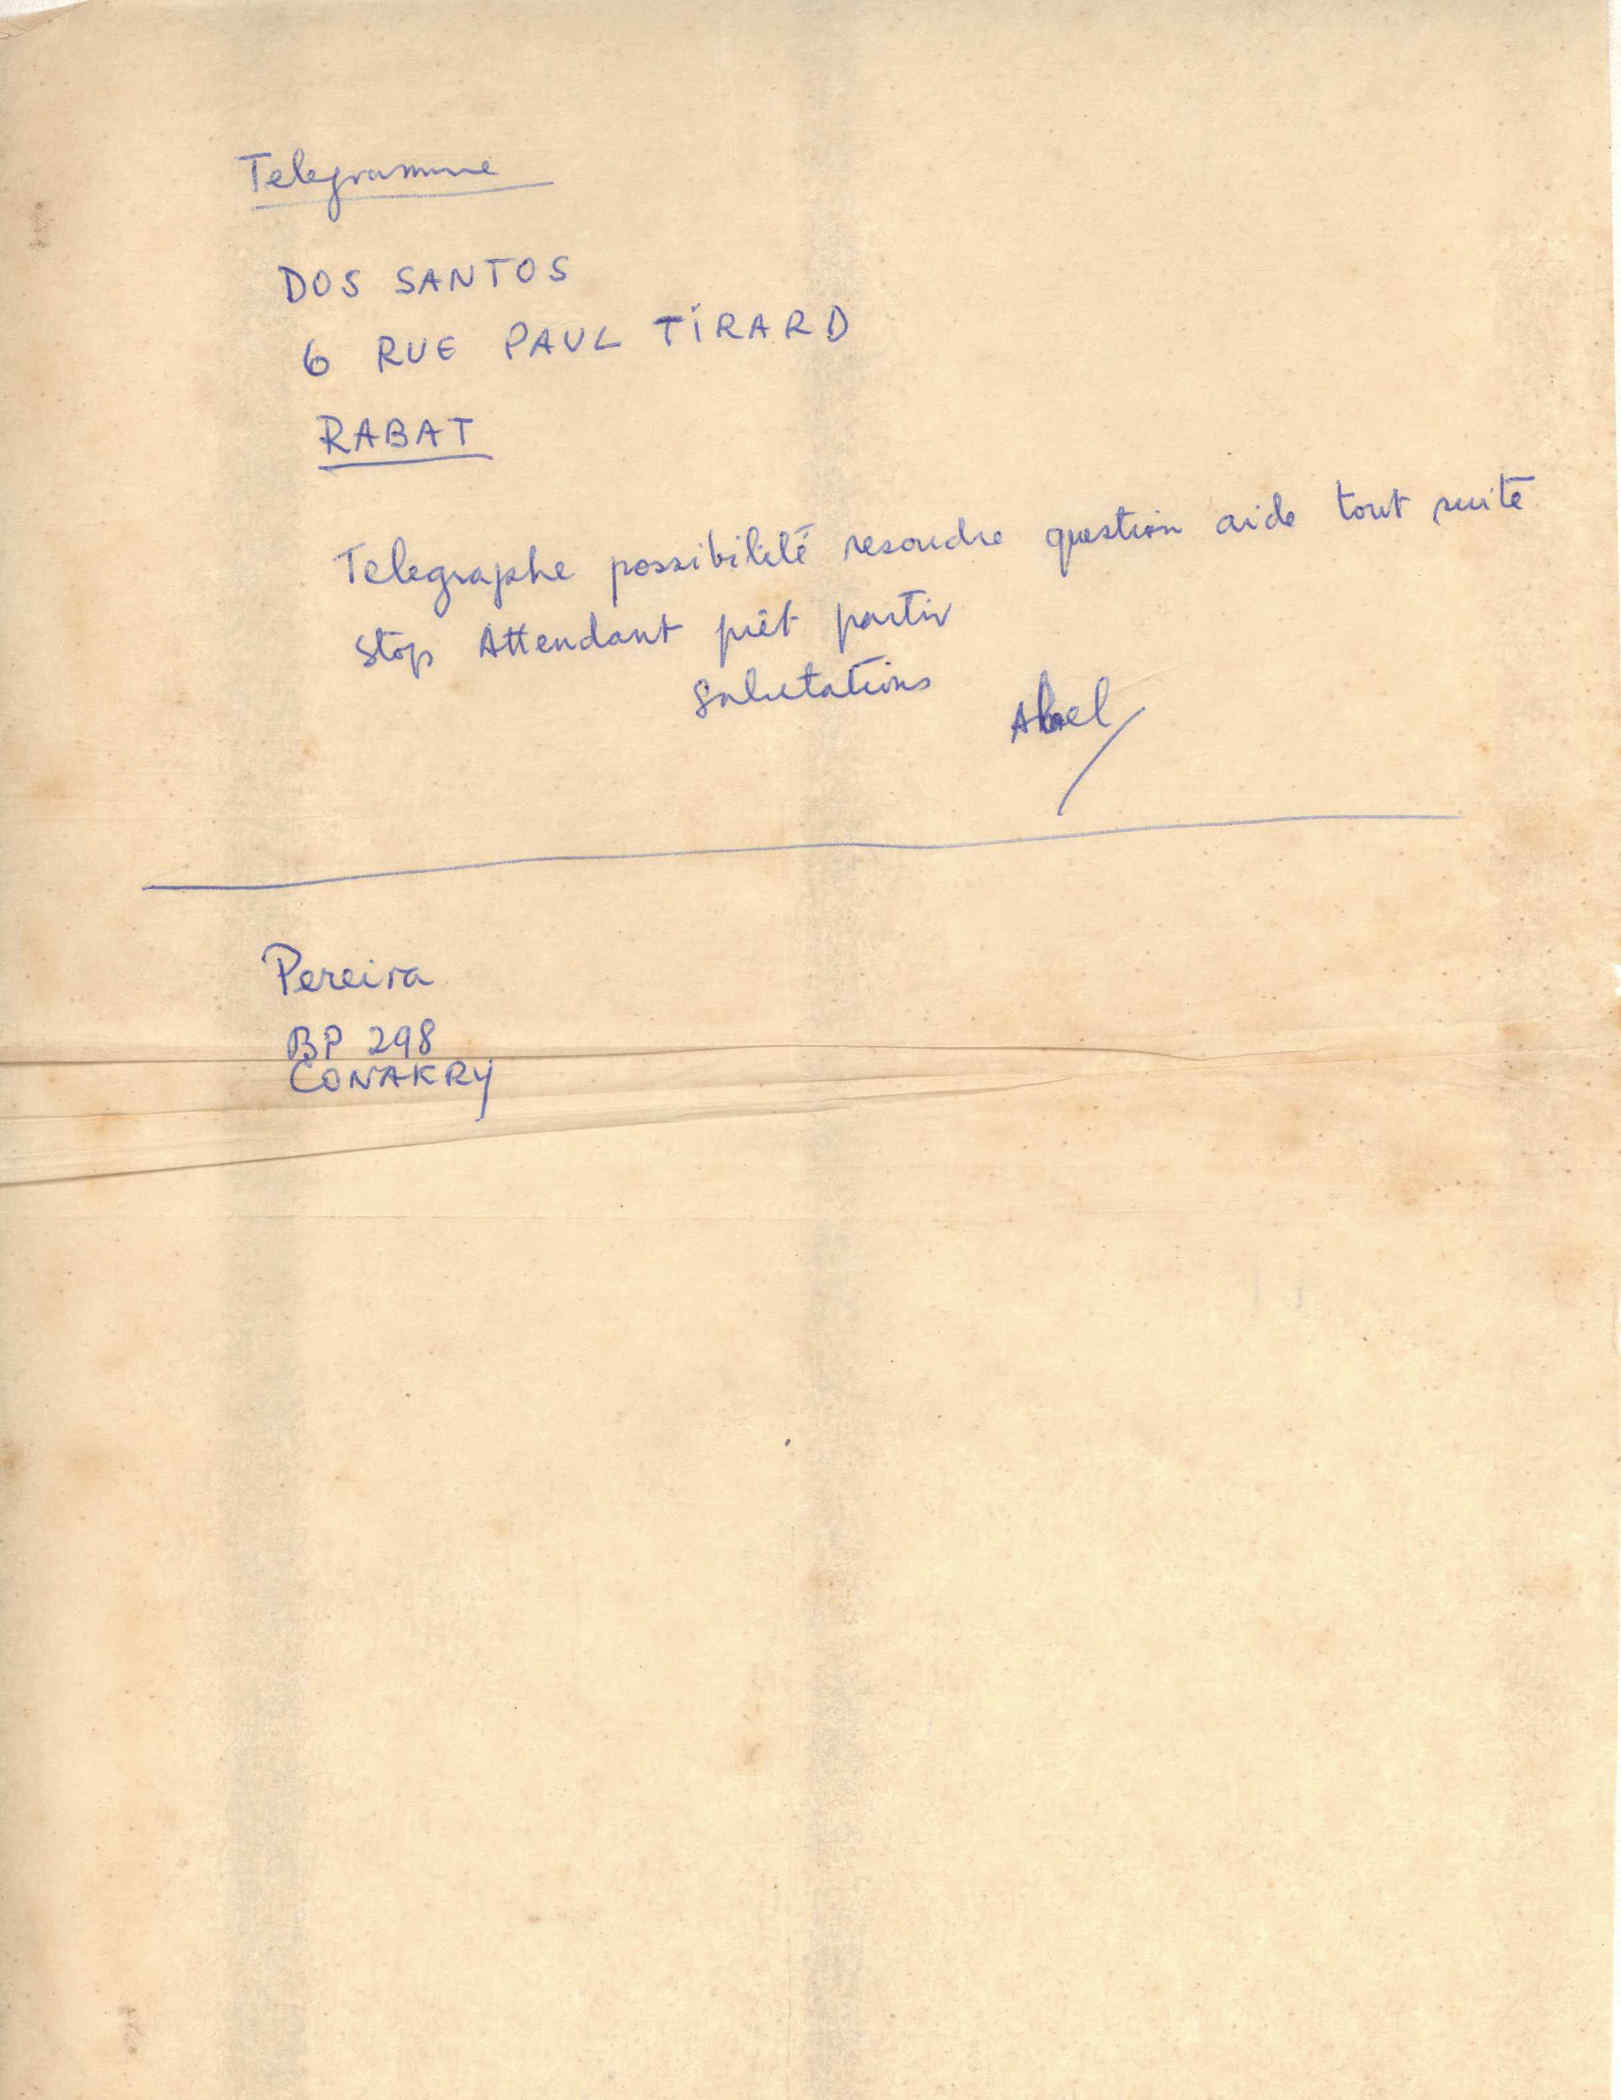 Telegramme
DOS SANTOS
6 RUE PAUL TIRARD
RABAT
Telegraphe possibilité resoudre question aide tout suite
Stop Attendant prêt partir
Salutations
Abel
Pereira
BP 298
CONAKRY